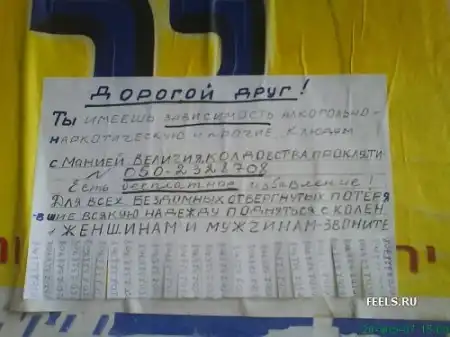 ДОРОГОЙ ДРУГ!
ТЫ ИМЕЕШЬ ЗАВИСИМОСТЬ АЛКОГОЛЬНО-
НАРКОТИЧЕСКУЮ И ПРОЧИЕ, К ЛЮДЯМ
С МАНИЕЙ ВЕЛИЧИЯ, КОЛДОВСТВА ПРОКЛЯТИ
N 050-2328708
ЕСТЬ БЕСПЛАТНОЕ ИЗБАВЛЕНИЕ!
ДЛЯ ВСЕХ БЕЗДОМНЫХ ОТВЕРГНУТЫХ ПОТЕРЯ
-ВШИЕ ВСЯКУЮ НАДЕЖДУ ПОДНЯТЬСЯ С КОЛЕН
ЖЕНЩИНАМ И МУЖЧИНАМ-ЗВОНИТЕ
FEELS.RU